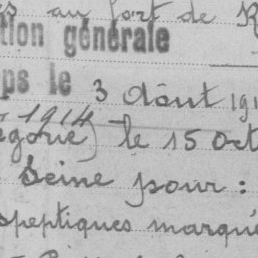 s au fort de R
tion générale
ps le 3 Août 191
1914
égorie) le 15 Oct
Seine pour :
speptiques marqué